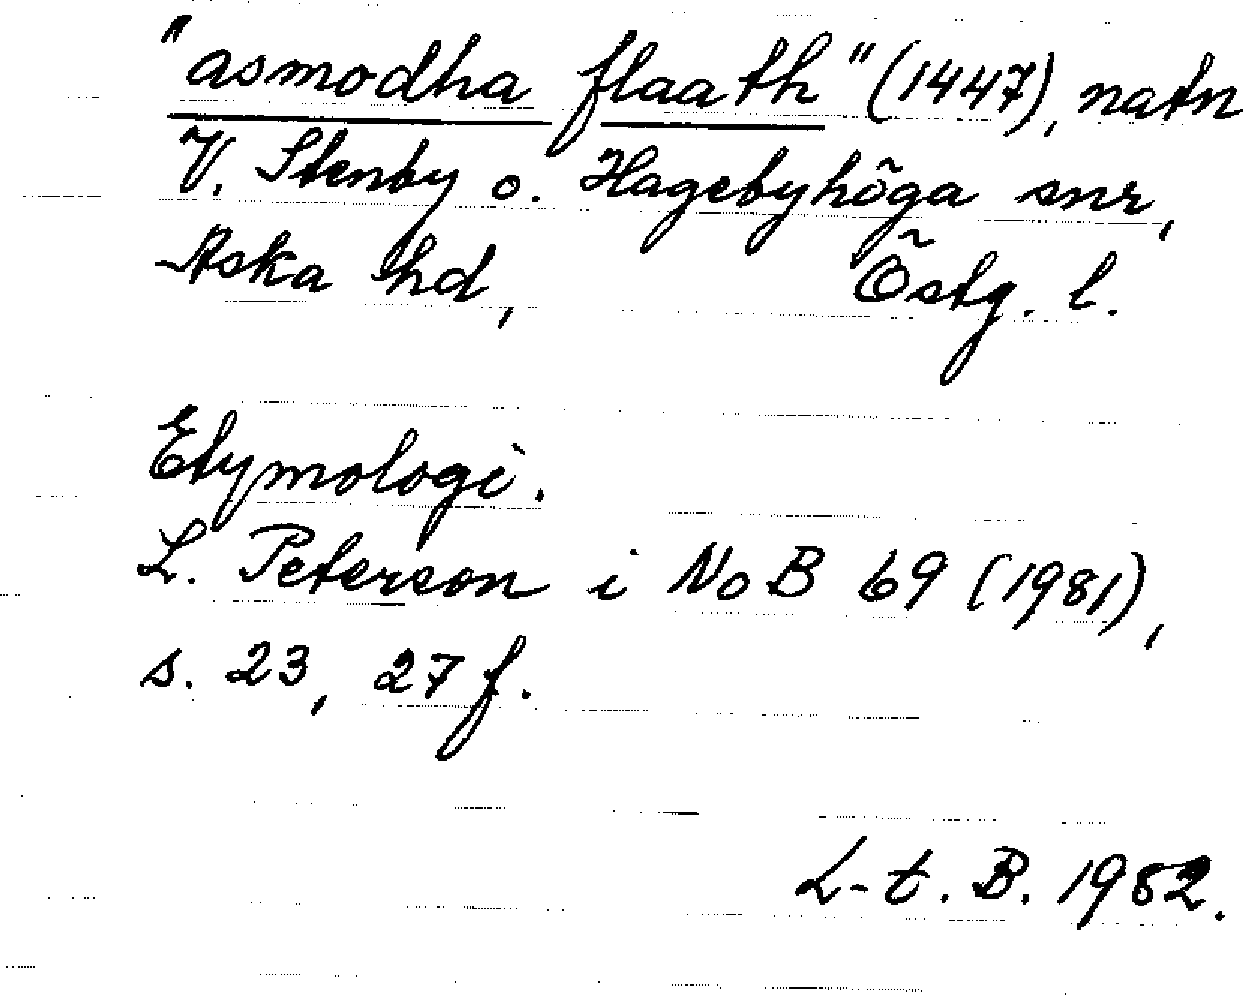 "asmodha flaath" (1447), natn
V. Stenby o. Hagebyhöga snr,
Aska hd, Östg. l.
Etymologi.
L. Peterson i NoB 69 (1981),
s. 23, 27 f.
L-t. B. 1982.